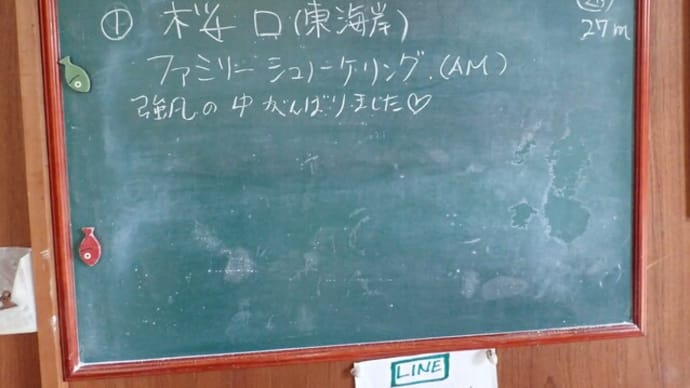 ① 桜口(東海岸)
27m
ファミリーシュノーケリング.(AM)
強風の中がんばりました♡
LINE